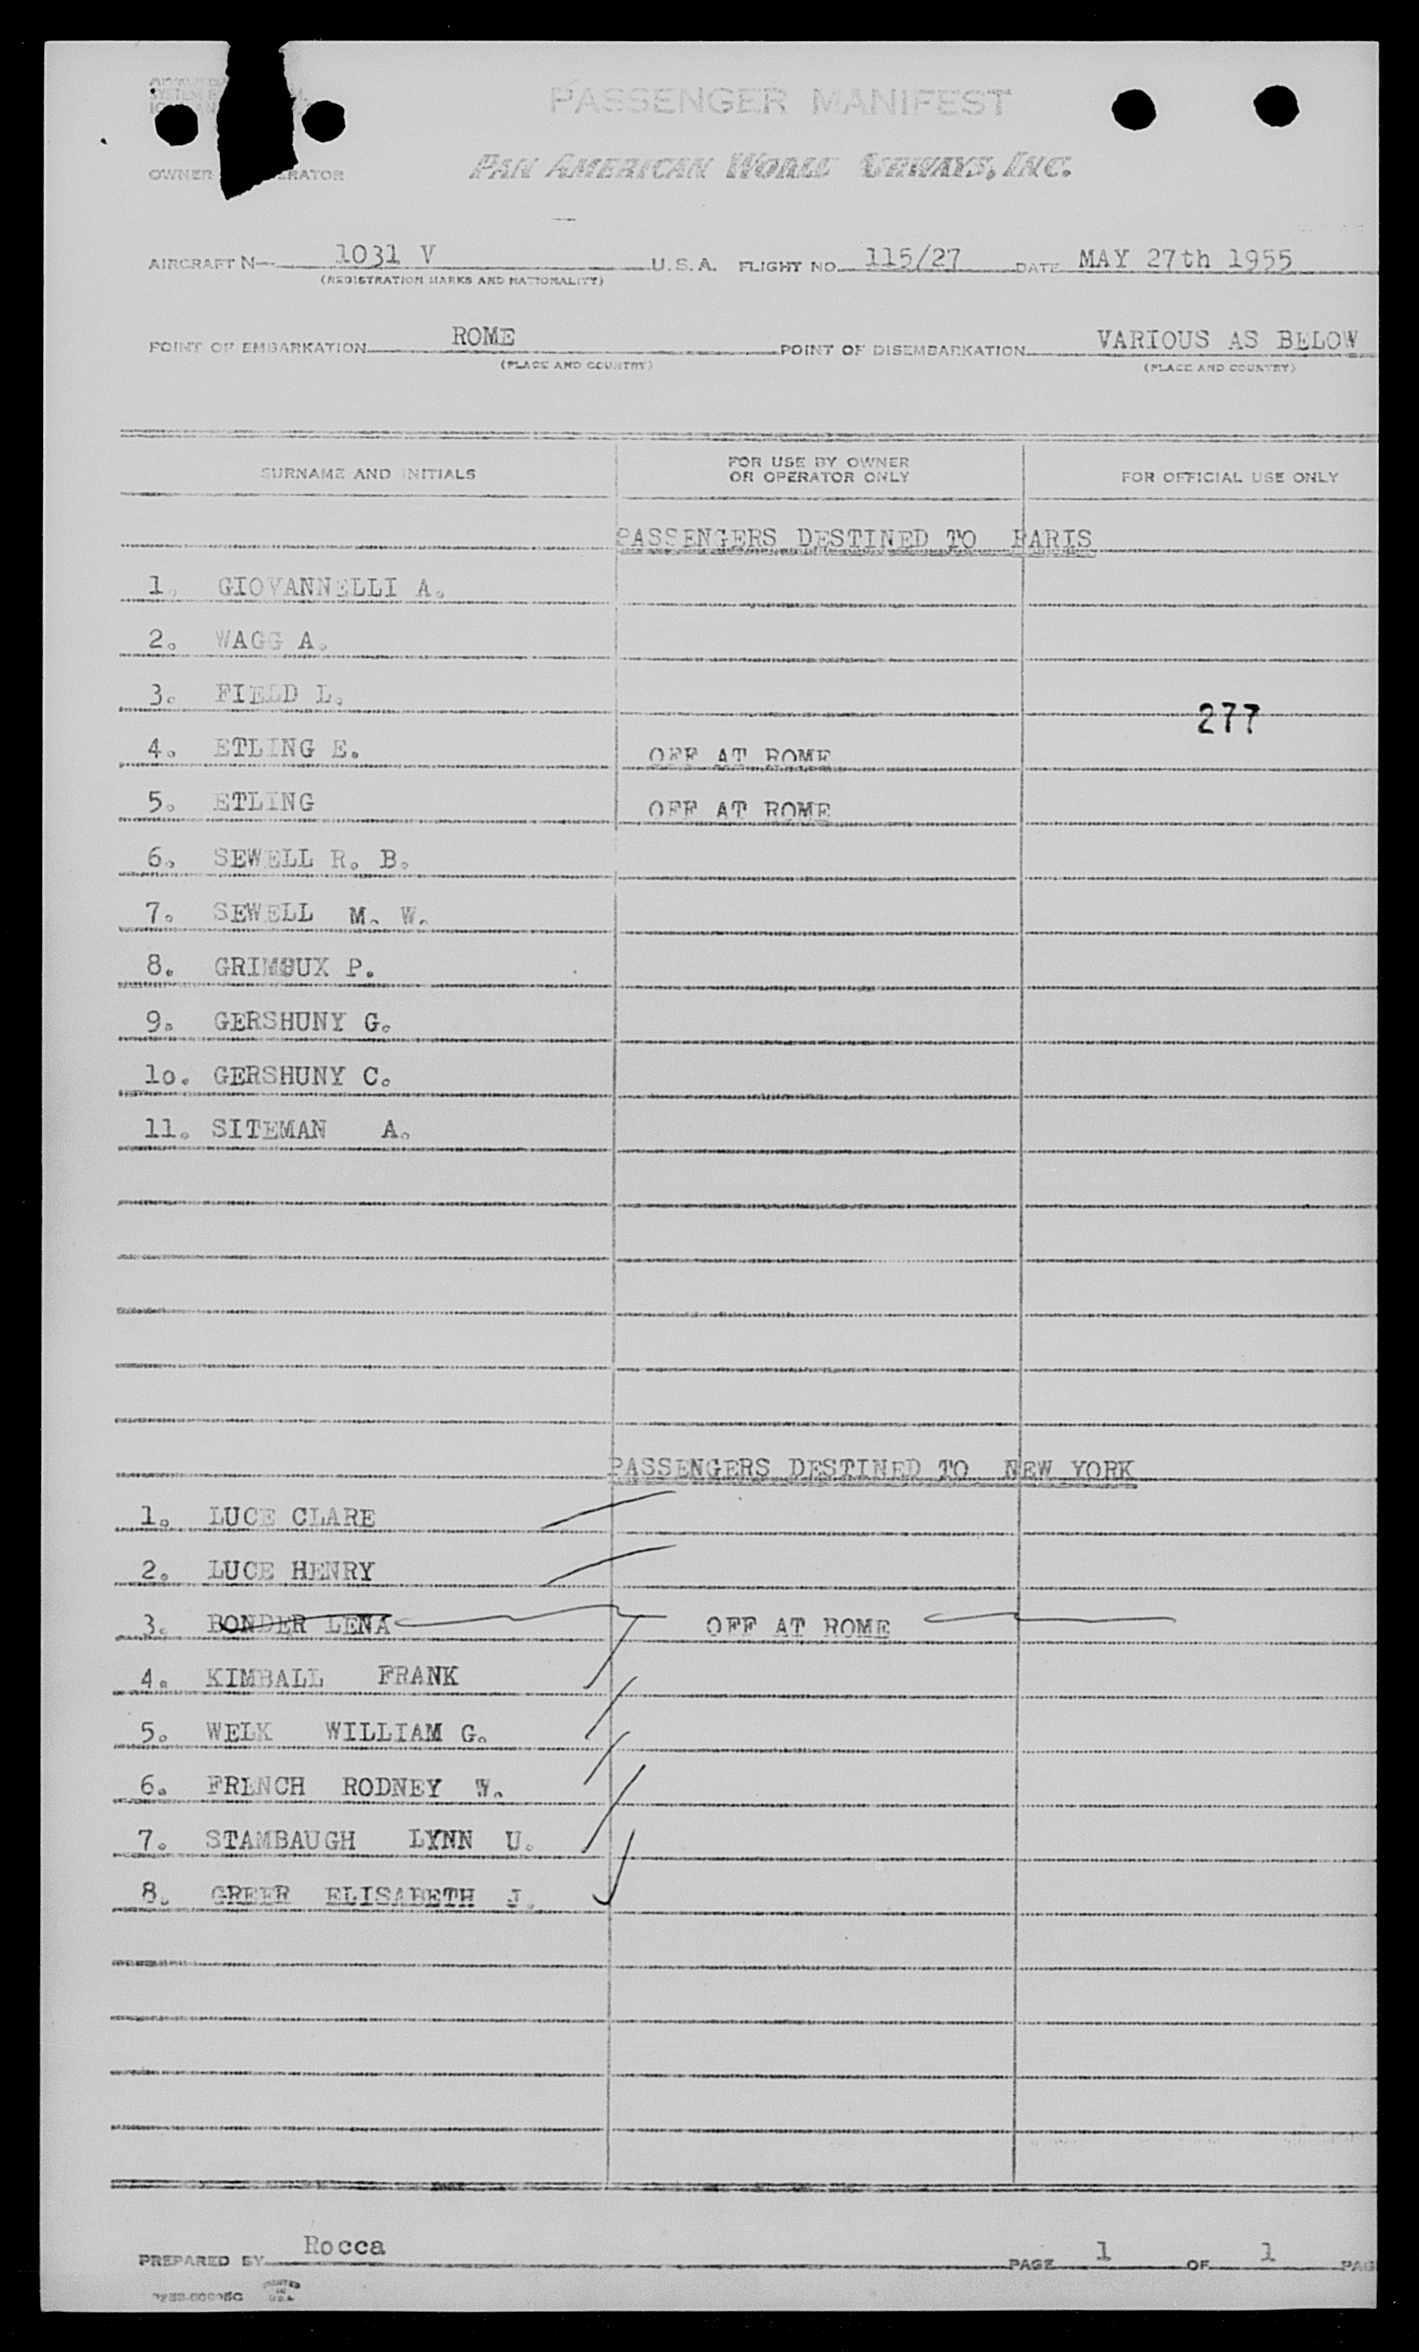 PASSENGER MANIFEST
OWNER RATOR
PAN AMERICAN WORLD AIRWAYS, INC.
AIRCRAFT N— 1031 V U. S. A. FLIGHT NO. 115/27 DATE MAY 27th 1955
(REGISTRATION MARKS AND NATIONALITY)
POINT OF EMBARKATION ROME POINT OF DISEMBARKATION VARIOUS AS BELOW
(PLACE AND COUNTRY) (PLACE AND COUNTRY)
SURNAME AND INITIALS FOR USE BY OWNER OR OPERATOR ONLY FOR OFFICIAL USE ONLY
PASSENGERS DESTINED TO PARIS
1. GIOVANNELLI A.
2. WAGG A.
3. FIELD L.
277
4. ETLING E. OFF AT ROME
5. ETLING OFF AT ROME
6. SEWELL R. B.
7. SEWELL M. W.
8. GRIMOUX P.
9. GERSHUNY G.
1o. GERSHUNY C.
11. SITEMAN A.
PASSENGERS DESTINED TO NEW YORK
1. LUCE CLARE
2. LUCE HENRY
3. BONDER LENA OFF AT ROME
4. KIMBALL FRANK
5. WELK WILLIAM G.
6. FRENCH RODNEY W.
7. STAMBAUGH LYNN U.
8. GREER ELISABETH J.
PREPARED BY Rocca PAGE 1 OF 1 PAG
PRINTED IN U.S.A.